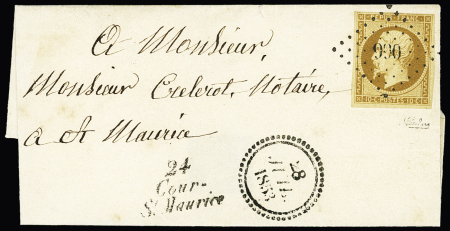 A Monsieur,
Monsieur Crelerot, Notaire,
a St Maurice
990
10 C POSTES 10 C
24
Cour-
St Maurice
28
1853